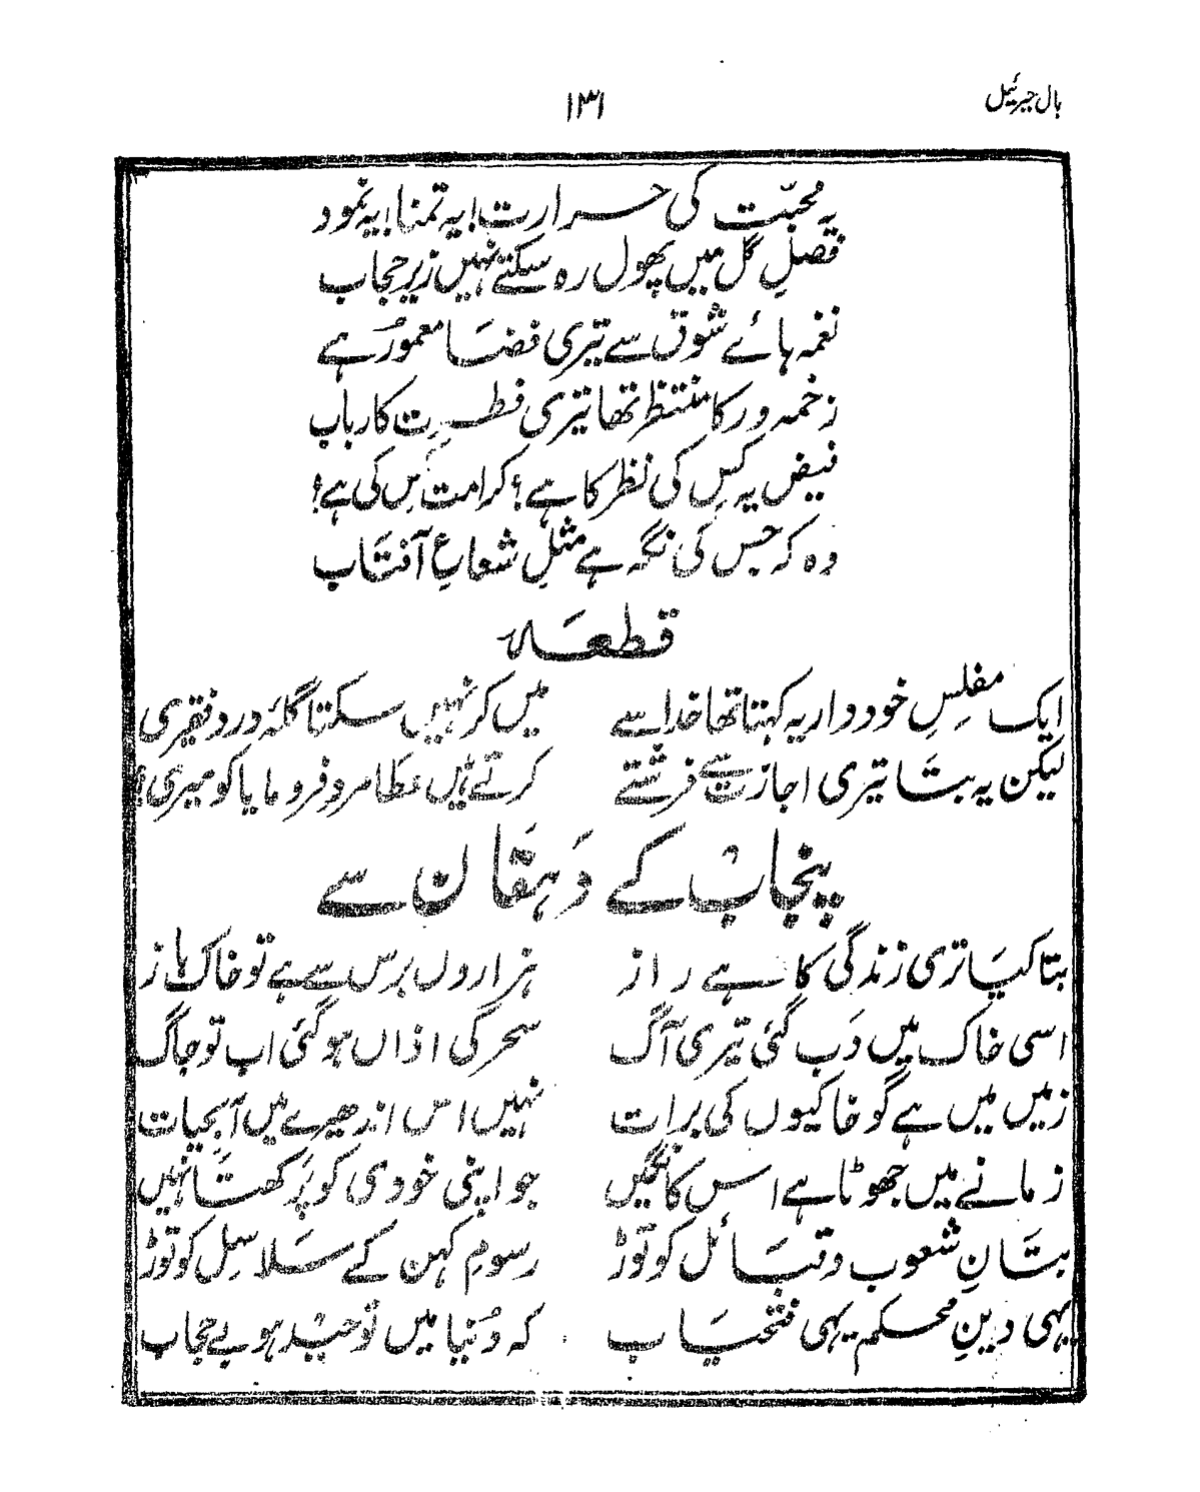 بال جبرئیل
۱۳۱
یہ محبّت کی حرارت! یہ تمنا! یہ نمود
فصلِ گل میں پھول رہ سکتے نہیں زیرِ حجاب
نغمہ ہائے شوق سے تیری فضَا معمُور ہے
زخمہ ور کا منتظر تھا تیری فطرِت کا رباب
فیض یہ کِس کی نظر کا ہے؟ کرامت کِس کی ہے؟
وہ کہ جس کی نگہ ہے مثلِ شعاعِ آفتَاب
قطعَہ
ایک مفلِسِ خود دار یہ کہتا تھا خدا سے میں کر نہیں سکتا گلۂ دردِ فقیری
لیکن یہ بتَا تیری اجازت سے فرشتے کرتے ہیں عطا مردِ فرومایا کو میری؟
پنجاب کے دَہقَان سے
بتا کیَا تری زندگی کا ہے راز ہزاروں برس سے ہے تو خاک باز
اسی خاک میں دَب گئی تیری آگ سحر کی اذاں ہو گئی اب تو جاگ
زمیں میں ہے گو خاکیوں کی برات نہیں اس اندھیرے میں آبِ حیات
زمانے میں جھوٹا ہے اس کا نگیں جو اپنی خودی کو پرَکھتَا نہیں
بتَانِ شعوب و قبَائل کو توڑ رسومِ کہن کے سَلاسِل کو توڑ
یہی دینِ محکم یہی فتحیَاب کہ دُنیا میں توحید ہو بے حجاب